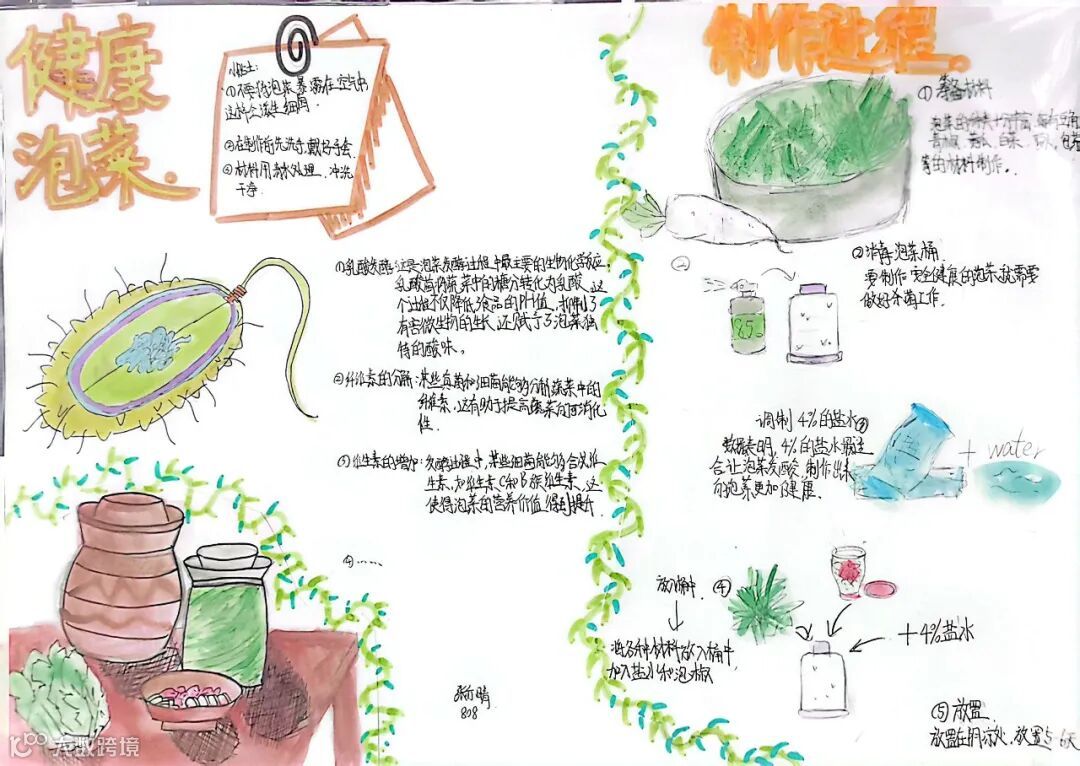 健康
泡菜.
小贴士:
①不要将泡菜暴露在空气中
这样会滋生细菌.
②在制作前先洗手,戴好手套
③材料用清水处理,冲洗
干净.
①乳酸发酵:这是泡菜发酵过程中最主要的生物化学反应,
乳酸菌将蔬菜中的糖分转化为乳酸,这
个过程不仅降低了食品的PH值,抑制了
有害微生物的生长,还赋予了泡菜独
特的酸味。
②纤维素的分解:某些真菌和细菌能够分解蔬菜中的
纤维素,这有助于提高蔬菜的可消化
性.
③维生素的增加:发酵过程中,某些细菌能够合成维
生素,如维生素C和B族维生素,这
使得泡菜的营养价值得到提升.
④……
808
制作过程.
①准备材料
泡菜的种类十分丰富,
青椒,白菜,
等的材料制作。
②消毒泡菜桶
要制作安全健康的泡菜就需要
做好杀菌工作.
85.
调制4%的盐水③
数据表明,4%的盐水最适
合让泡菜发酸,制作出来
的泡菜更加健康.
盐
+ water
放入桶中. ④
将各种材料放入桶中
加入盐水和泡椒
+4%盐水
⑤放置.
放置在阴凉处,放置5-6天
大数跨境